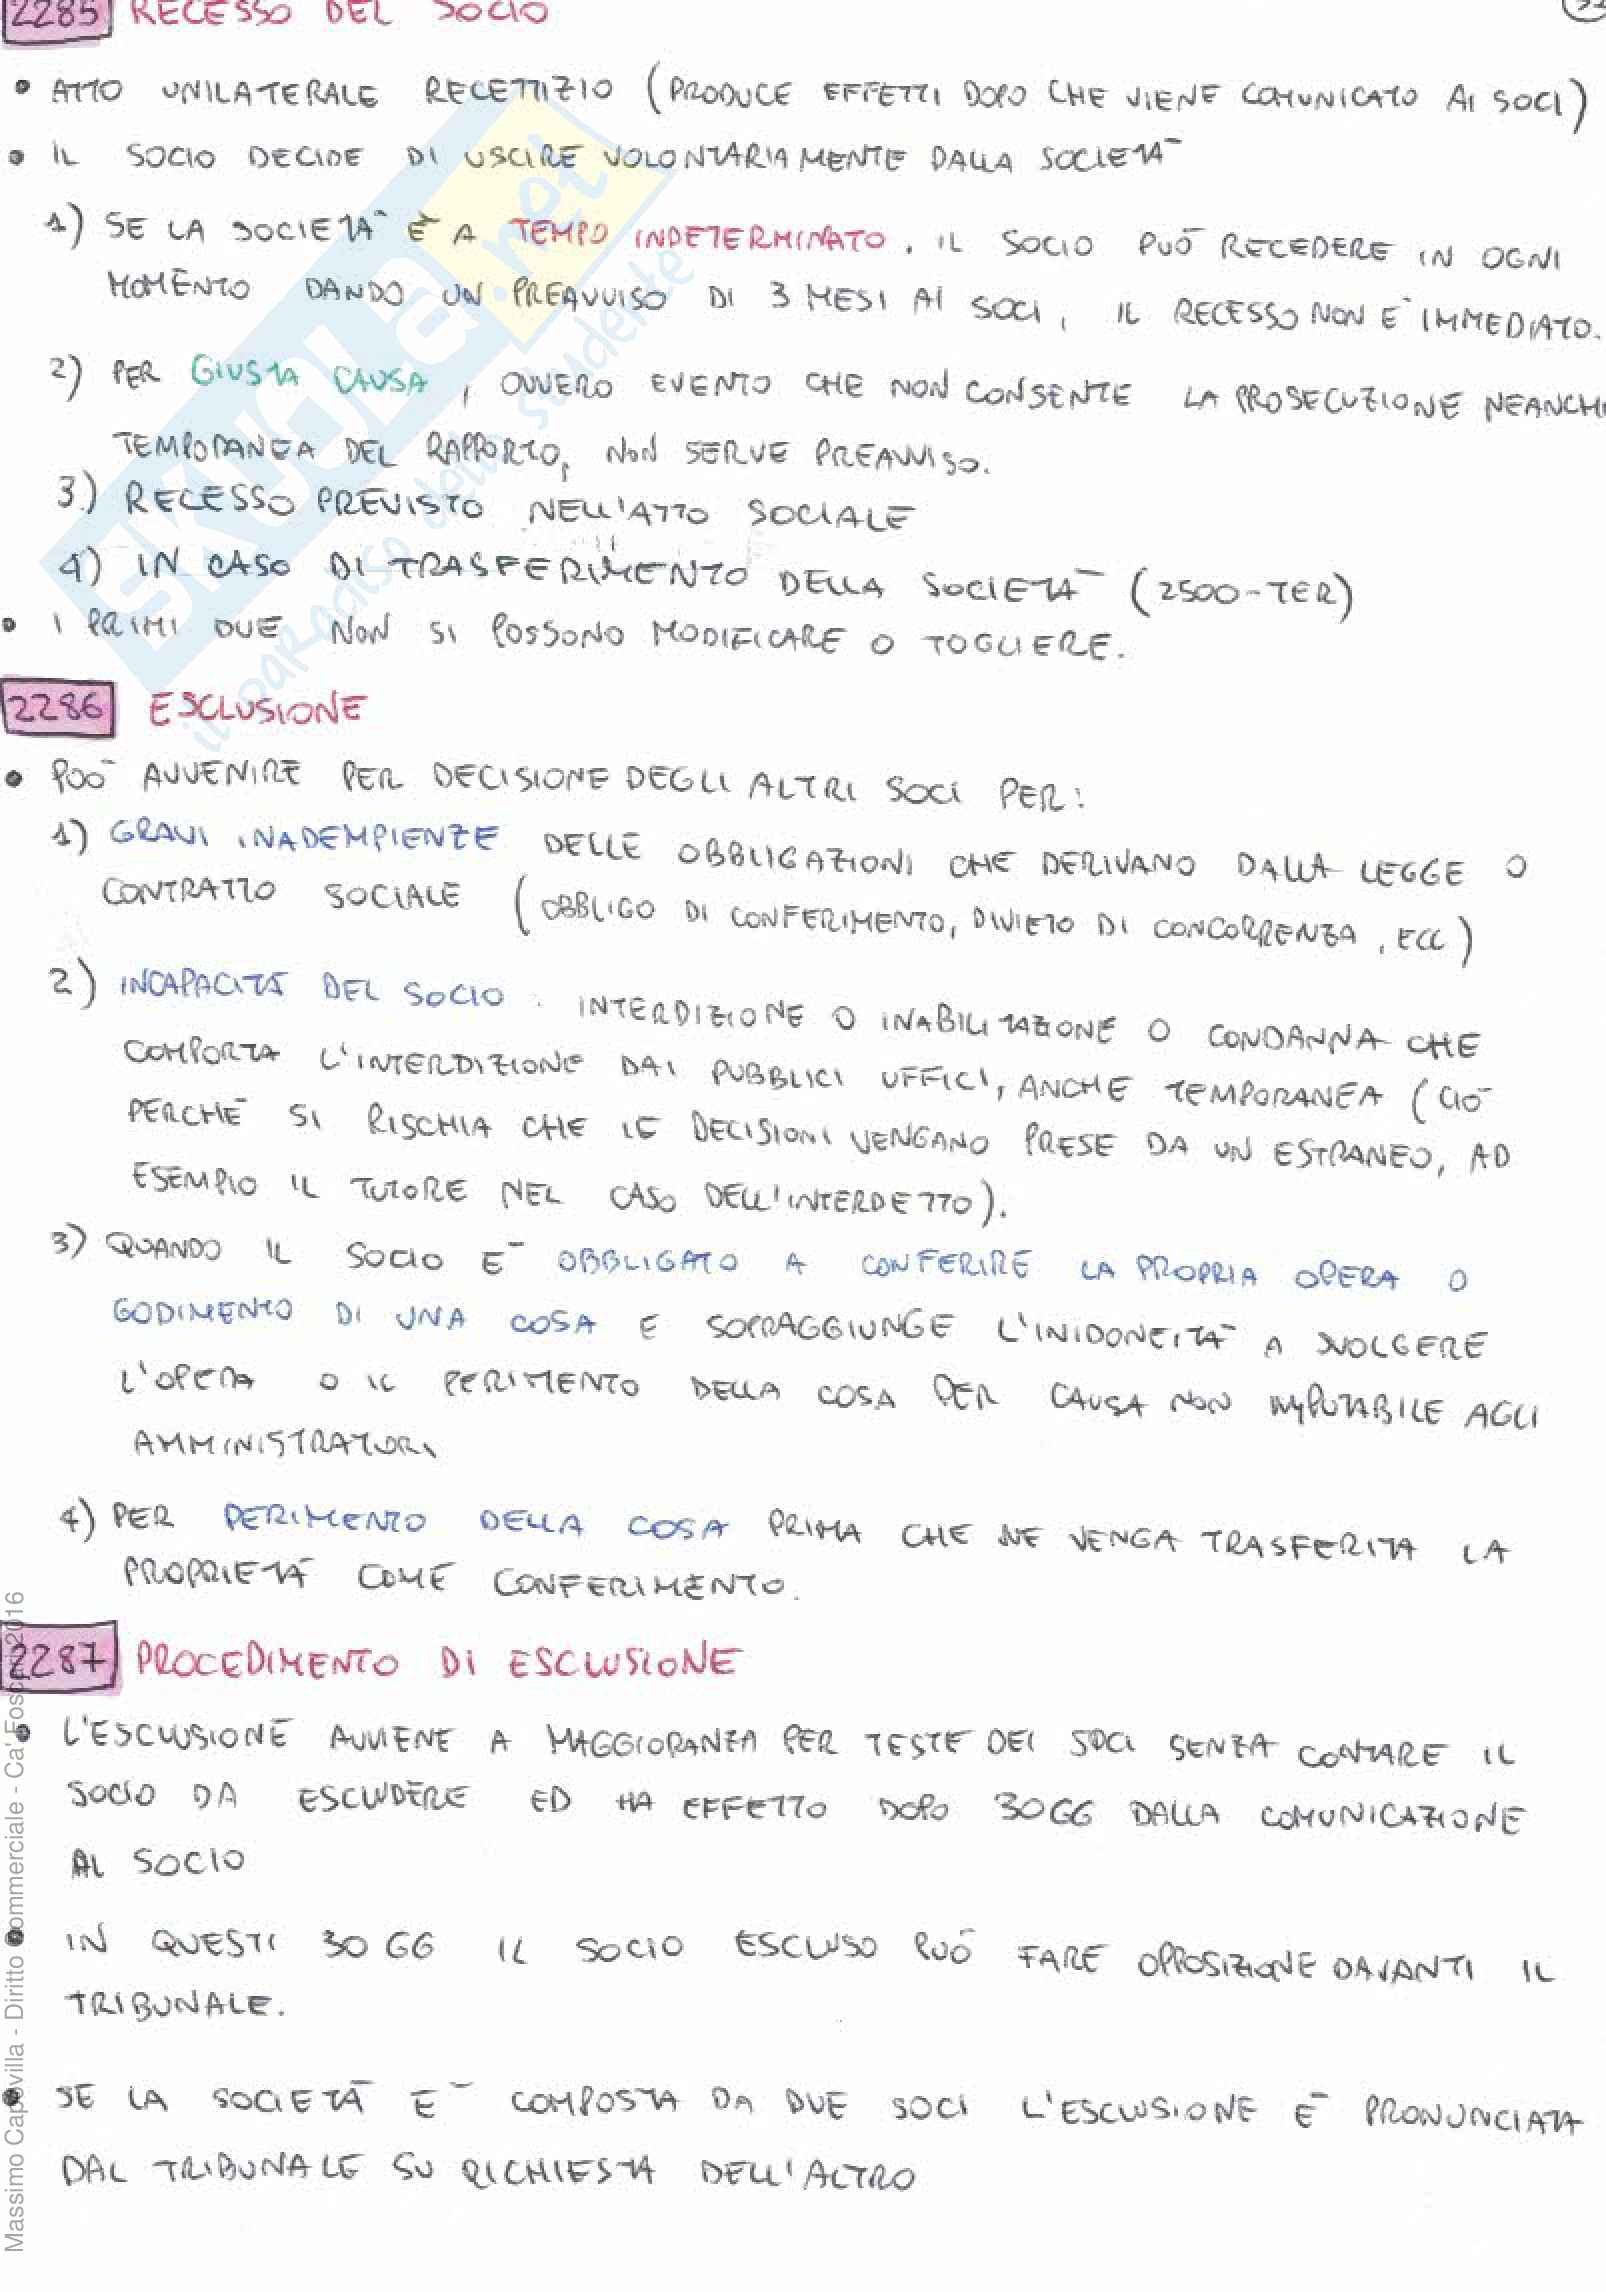 2285 RECESSO DEL SOCIO
• ATTO UNILATERALE RECETTIZIO (PRODUCE EFFETTI DOPO CHE VIENE COMUNICATO AI SOCI)
• IL SOCIO DECIDE DI USCIRE VOLONTARIAMENTE DALLA SOCIETÀ
1) SE LA SOCIETÀ È A TEMPO INDETERMINATO, IL SOCIO PUÒ RECEDERE IN OGNI
MOMENTO DANDO UN PREAVVISO DI 3 MESI AI SOCI, IL RECESSO NON È IMMEDIATO.
2) PER GIUSTA CAUSA, OVVERO EVENTO CHE NON CONSENTE LA PROSECUZIONE NEANCH
TEMPORANEA DEL RAPPORTO, NON SERVE PREAVVISO.
3) RECESSO PREVISTO NELL'ATTO SOCIALE
4) IN CASO DI TRASFERIMENTO DELLA SOCIETÀ (2500-TER)
• I PRIMI DUE NON SI POSSONO MODIFICARE O TOGLIERE.
2286 ESCLUSIONE
• PUÒ AVVENIRE PER DECISIONE DEGLI ALTRI SOCI PER:
1) GRAVI INADEMPIENZE DELLE OBBLIGAZIONI CHE DERIVANO DALLA LEGGE O
CONTRATTO SOCIALE (OBBLIGO DI CONFERIMENTO, DIVIETO DI CONCORRENZA, ECC)
2) INCAPACITÀ DEL SOCIO: INTERDIZIONE O INABILITAZIONE O CONDANNA CHE
COMPORTA L'INTERDIZIONE DAI PUBBLICI UFFICI, ANCHE TEMPORANEA (CIÒ
PERCHÉ SI RISCHIA CHE LE DECISIONI VENGANO PRESE DA UN ESTRANEO, AD
ESEMPIO IL TUTORE NEL CASO DELL'INTERDETTO).
3) QUANDO IL SOCIO È OBBLIGATO A CONFERIRE LA PROPRIA OPERA O
GODIMENTO DI UNA COSA E SOPRAGGIUNGE L'INIDONEITÀ A SVOLGERE
L'OPERA O IL PERIMENTO DELLA COSA PER CAUSA NON IMPUTABILE AGLI
AMMINISTRATORI
4) PER PERIMENTO DELLA COSA PRIMA CHE NE VENGA TRASFERITA LA
PROPRIETÀ COME CONFERIMENTO.
2287 PROCEDIMENTO DI ESCLUSIONE
• L'ESCLUSIONE AVVIENE A MAGGIORANZA PER TESTE DEI SOCI SENZA CONTARE IL
SOCIO DA ESCLUDERE ED HA EFFETTO DOPO 30GG DALLA COMUNICAZIONE
AL SOCIO
• IN QUESTI 30 GG IL SOCIO ESCLUSO PUÒ FARE OPPOSIZIONE DAVANTI IL
TRIBUNALE.
• SE LA SOCIETÀ È COMPOSTA DA DUE SOCI L'ESCLUSIONE È PRONUNCIATA
DAL TRIBUNALE SU RICHIESTA DELL'ALTRO
SKUOLA.net
il paradiso dello studente
Massimo Capovilla - Diritto Commerciale - Ca' Foscari 2016